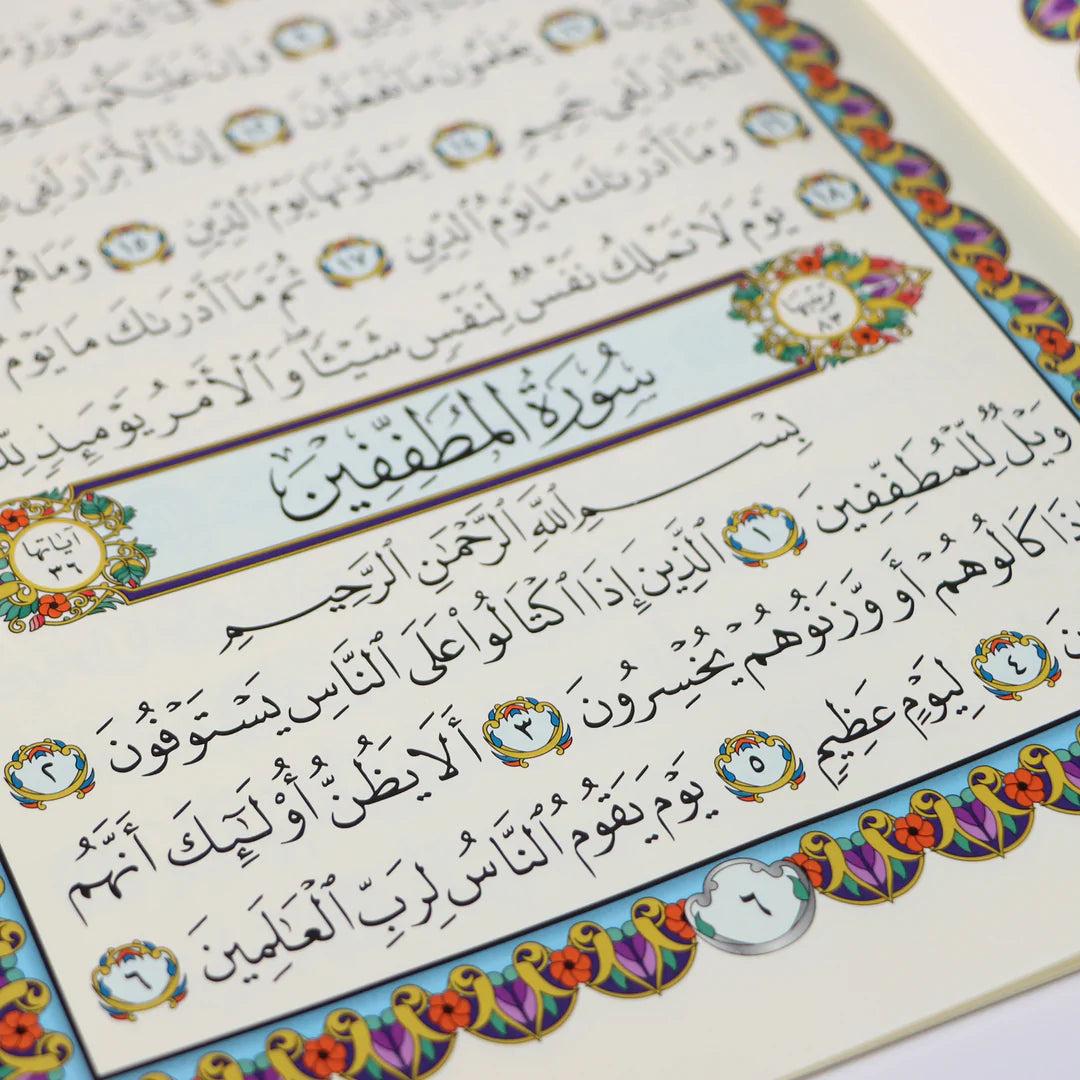 وَإِنَّ عَلَيْكُمْ
يَعْلَمُونَ مَا تَفْعَلُونَ ١٢ إِنَّ ٱلْأَبْرَارَ لَفِى
ٱلْفُجَّارَ لَفِى جَحِيمٍ ١٤ يَصْلَوْنَهَا يَوْمَ ٱلدِّينِ ١٥ وَمَا هُمْ
١٦ وَمَآ أَدْرَىٰكَ مَا يَوْمُ ٱلدِّينِ ١٧ ثُمَّ مَآ أَدْرَىٰكَ مَا يَوْمُ
١٨ يَوْمَ لَا تَمْلِكُ نَفْسٌ لِّنَفْسٍ شَيْـًٔا ۖ وَٱلْأَمْرُ يَوْمَئِذٍ
ترتيبها ٨٣ سُورَةُ المُطَفِّفِينَ آياتها ٣٦
بِسْمِ ٱللَّهِ ٱلرَّحْمَٰنِ ٱلرَّحِيمِ
وَيْلٌ لِّلْمُطَفِّفِينَ ١ ٱلَّذِينَ إِذَا ٱكْتَالُوا۟ عَلَى ٱلنَّاسِ يَسْتَوْفُونَ ٢
كَالُوهُمْ أَو وَّزَنُوهُمْ يُخْسِرُونَ ٣ أَلَا يَظُنُّ أُو۟لَٰٓئِكَ أَنَّهُم
٤ لِيَوْمٍ عَظِيمٍ ٥ يَوْمَ يَقُومُ ٱلنَّاسُ لِرَبِّ ٱلْعَٰلَمِينَ ٦
٦